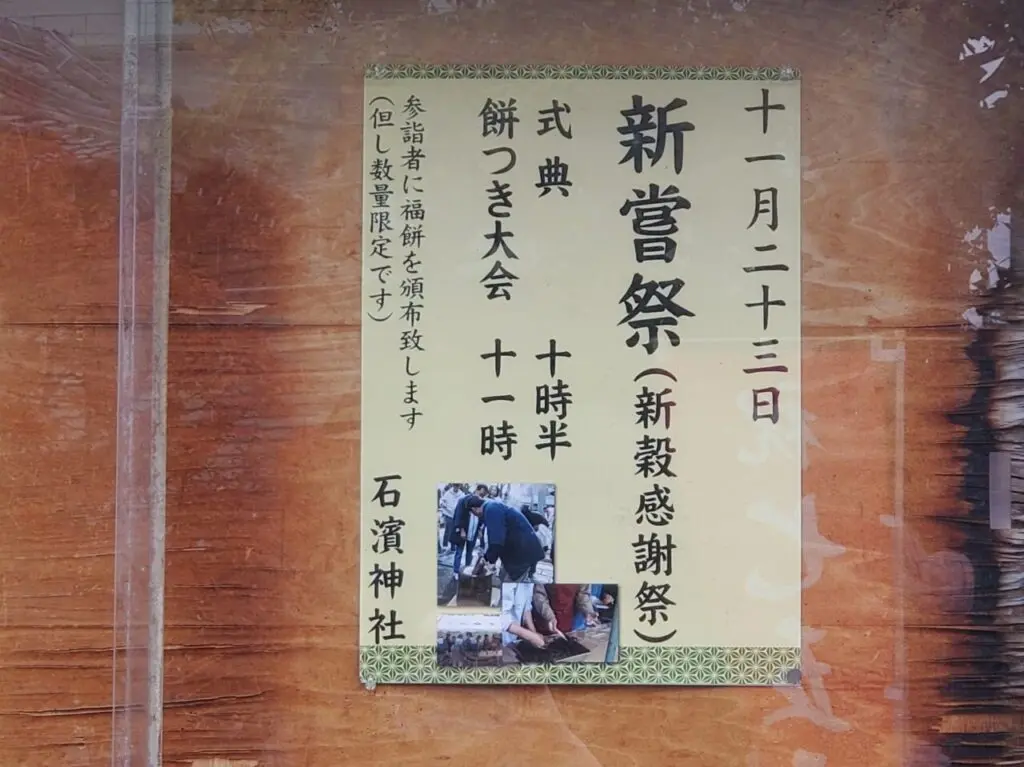 十一月二十三日
新嘗祭(新穀感謝祭)
式典 十時半
餅つき大会 十一時
参詣者に福餅を頒布致します
(但し数量限定です)
石濱神社